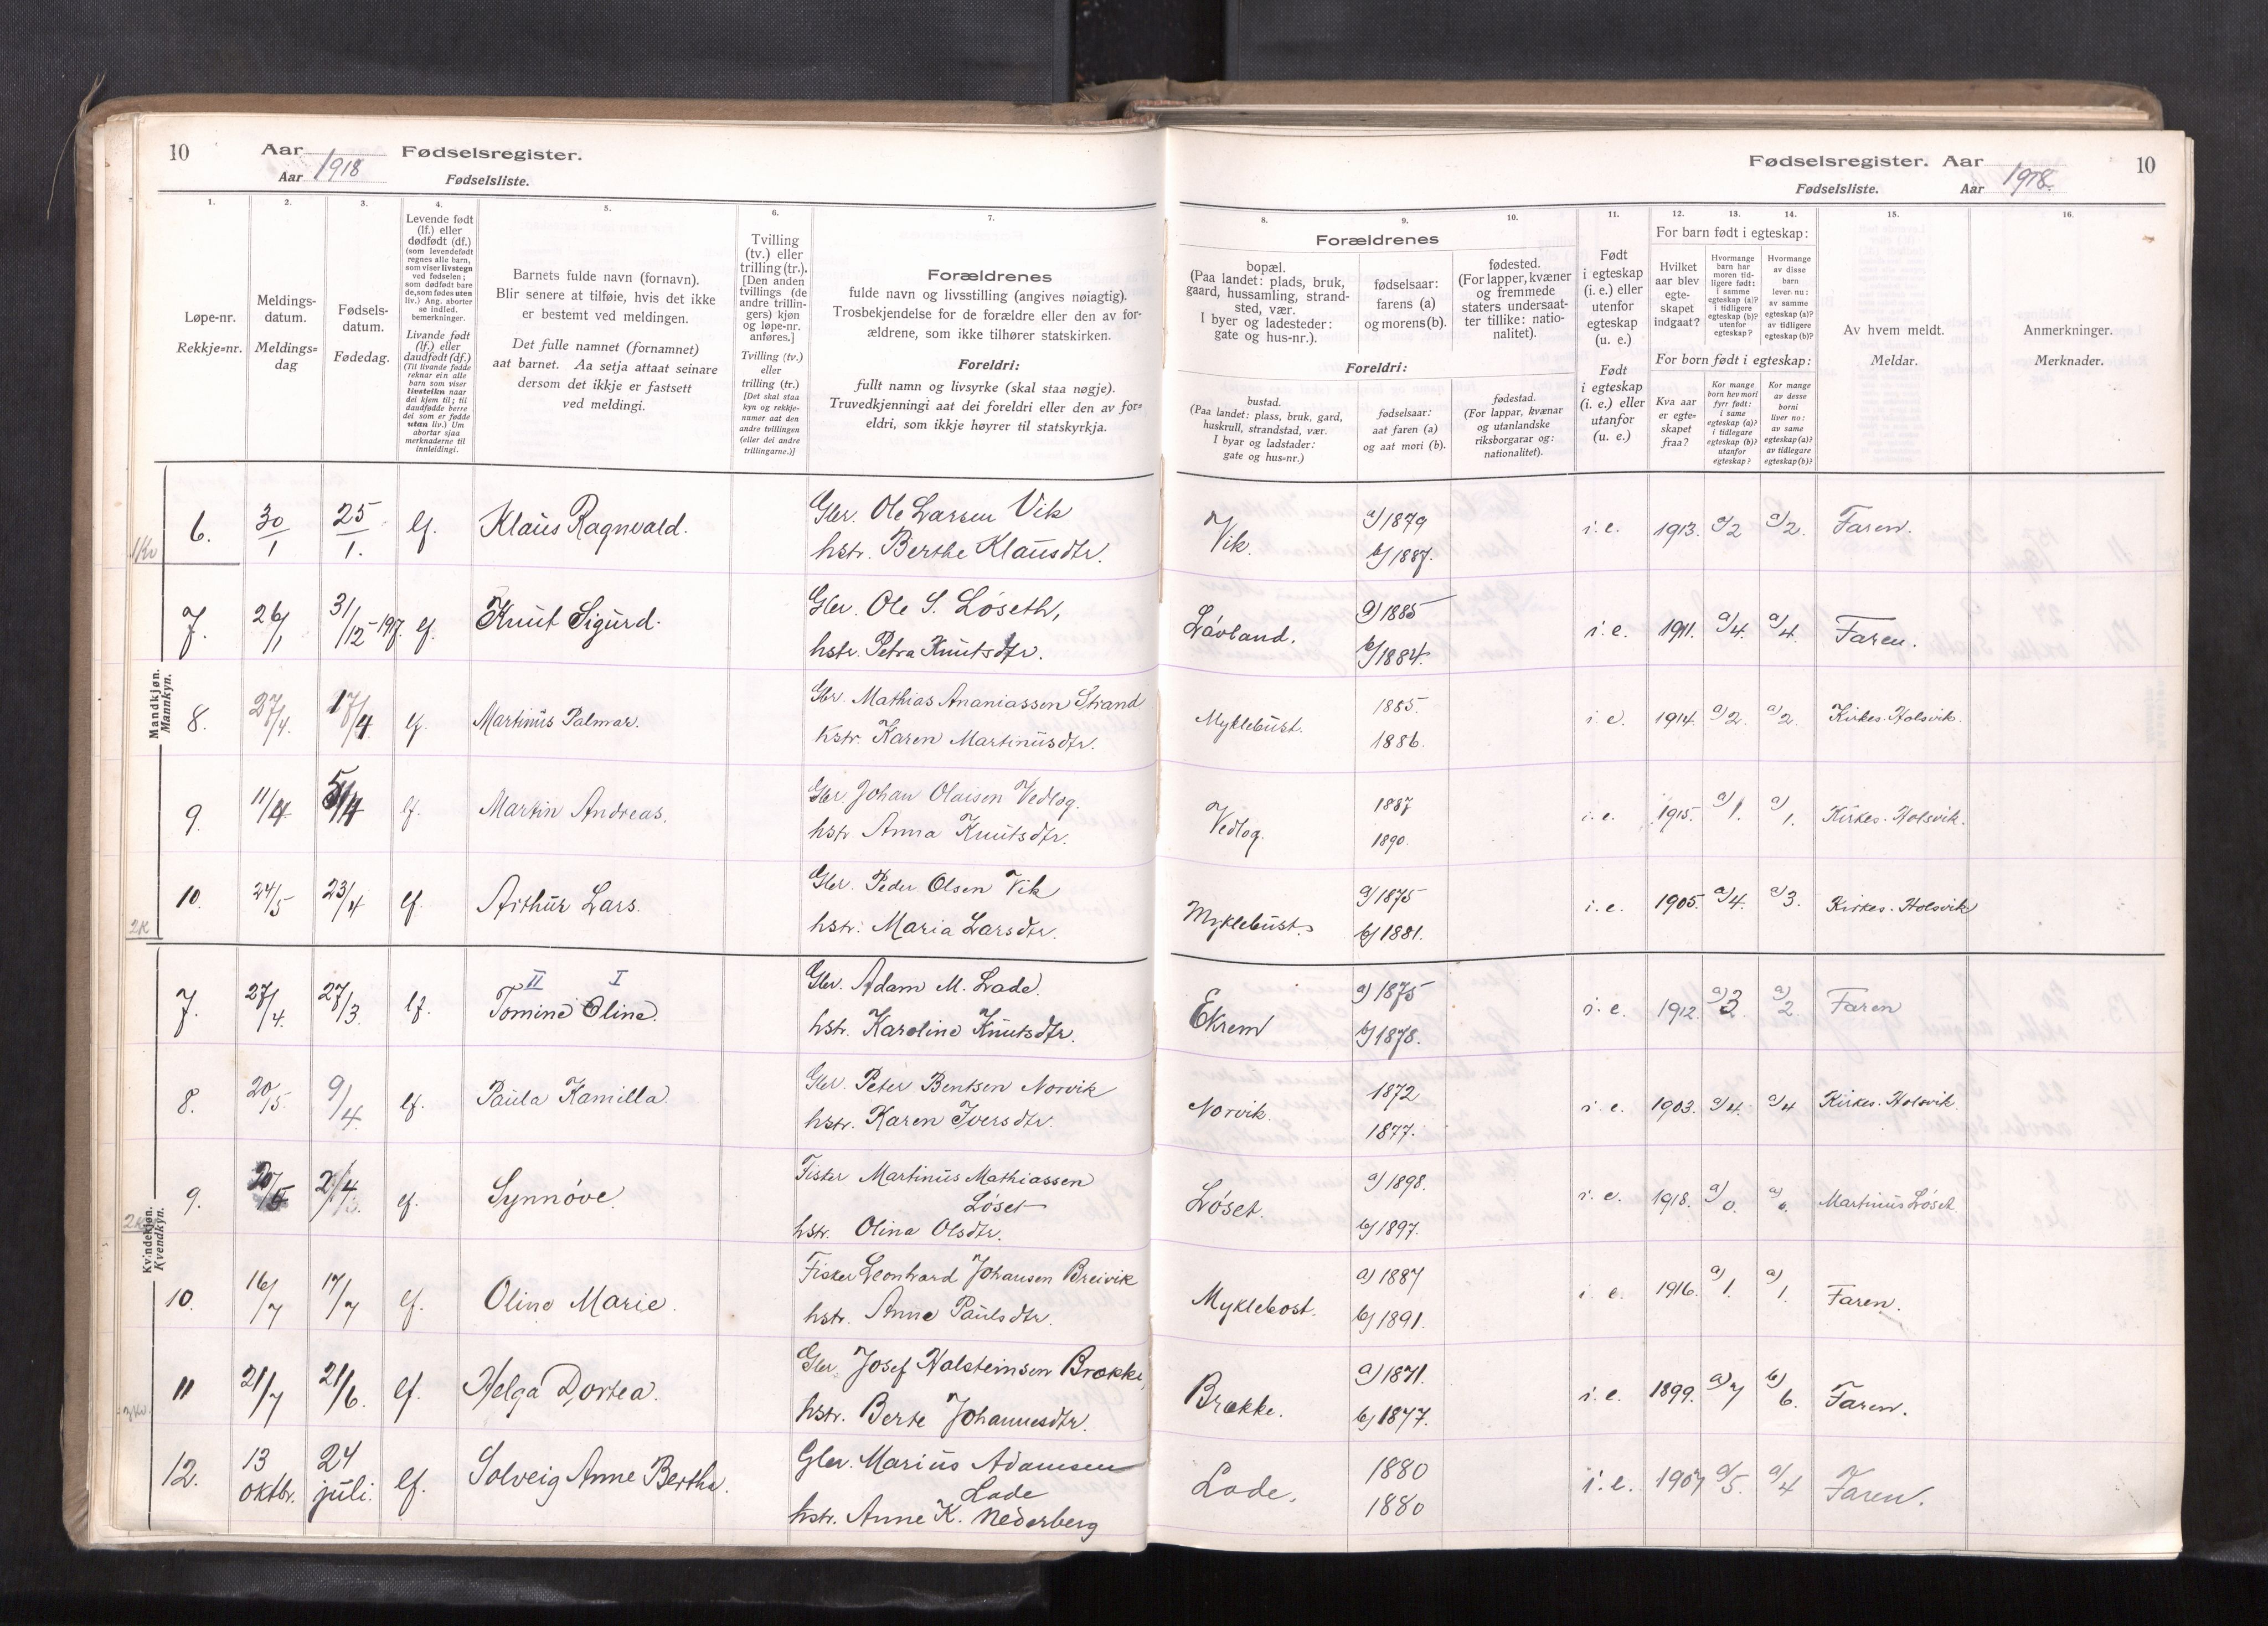 10 Aar Fødselsregister.
Aar 1918 Fødselsliste.
Fødselsregister. Aar 10
Fødselsliste. Aar 1918.
1. 2. 3. 4. 5. 6. 7.
8. 9. 10. 11. 12. 13. 14. 15. 16.
Løpe-nr.
Rekkje=nr.
Meldings-
datum.
Meldings=
dag
Fødsels-
datum.
Fødedag.
Levende født
(lf.) eller
dødfødt (df.)
(som levendefødt
regnes alle barn,
som viser livstegn
ved fødselen;
som dødfødt bare
de, som fødes uten
liv.) Ang. aborter
se indled.
bemerkninger.
Livande født
(lf.) eller
daudfødt (df.)
(Til livande fødde
reknar ein alle
barn som viser
livsteikn naar
dei kjem til; til
daudfødde berre
dei som er fødde
utan liv.) Um
abortar sjaa
merknaderne til
innleidingi.
Barnets fulde navn (fornavn).
Blir senere at tilføie, hvis det ikke
er bestemt ved meldingen.
Det fulle namnet (fornamnet)
aat barnet. Aa setja attaat seinare
dersom det ikkje er fastsett
ved meldingi.
Tvilling
(tv.) eller
trilling (tr.).
[Den anden
tvillings (de
andre trillin-
gers) kjøn
og løpe-nr.
anføres.]
Tvilling (tv.)
eller
trilling (tr.)
[Det skal staa
kyn og rekkje-
numer aat den
andre tvillingen
(eller dei andre
trillingarne.)]
Forældrenes
fulde navn og livsstilling (angives nøiagtig).
Trosbekjendelse for de forældre eller den av for-
ældrene, som ikke tilhører statskirken.
Foreldri:
fullt namn og livsyrke (skal staa nøgje).
Truvedkjenningi aat dei foreldri eller den av for=
eldri, som ikkje høyrer til statskyrkja.
Forældrenes
bopæl.
(Paa landet: plads, bruk,
gaard, hussamling, strand-
sted, vær.
I byer og ladesteder:
gate og hus-nr.).
fødselsaar:
farens (a)
og morens (b).
fødested.
(For lapper, kvæner
og fremmede
staters undersaat-
ter tillike: natio-
nalitet).
Foreldri:
bustad.
(Paa landet: plass, bruk, gard,
huskrull, strandstad, vær.
I byar og ladstader:
gate og hus=nr.)
fødselsaar:
aat faren (a)
og aat mori (b).
fødestad.
(For lappar, kvænar
og utanlandske
riksborgarar og:
nationalitet).
Født
i egteskap
(i. e.) eller
utenfor
egteskap
(u. e.)
Født
i egteskap
(i. e.) eller
utanfor
(u. e.)
For barn født i egteskap:
Hvilket
aar blev
egte-
skapet
indgaat?
Hvormange
barn har
moren tid-
ligere født:
i samme
egteskap (a)?
i tidligere
egteskap (b)?
utenfor
egteskap?
Hvormange
av disse
barn
lever nu:
av samme
egteskap (a)?
av tidligere
egteskap (b)?
For born født i egteskap:
Kva aar
er egte-
skapet
fraa?
Kor mange
born hev mori
fyrr født:
i same
egteskap (a)?
i tidlegare
egteskap (b)?
utanfor
egteskap?
Kor mange
av desse
borni
liver no:
av same
egteskap (a)?
av tidlegare
egteskap (b)?
Av hvem meldt.
Meldar.
Anmerkninger.
Merknader.
Mandkjøn.
Mannkyn.
6. 30/1 25/1. lf. Klaus Ragnvald. Gbr. Ole Larsen Vik Vik. a) 1879 i. e. 1913. a) 2 a) 2. Faren.
hstr. Berthe Klausdtr. b) 1887.
7. 26/1 31/12-1917. lf. Knut Sigurd. Gbr. Ole S. Løseth, Løvland. a) 1885 i. e. 1911. a) 4. a) 4. Faren.
hstr. Petra Knutsdtr. b) 1884.
8. 27/4. 17/4 lf. Martinus Palmar. Gbr. Mathias Ananiassen Strand Myklebust. 1885. i. e. 1914. a) 2. a) 2. Kirkes. Holsvik.
hstr. Karen Martinusdtr. 1886.
9. 11/4 5/4 lf. Martin Andreas. Gbr Johan Olaisen Vedlog. Vedlog. 1887 i. e. 1915. a) 1. a) 1. Kirkes. Holsvik.
hstr Anna Knutsdtr. 1890.
10. 24/5 23/4 lf. Arthur Lars. Gbr. Peder Olsen Vik Myklebust. a) 1875 i. e. 1905. a) 4. a) 3. Kirkes. Holsvik
hstr. Maria Larsdtr. b) 1881.
2K
Kvindekjøn.
Kvendkyn.
II I
7. 27/4. 27/3. lf. Tomine Oline. Gbr. Adam M. Lade. Ekrem a) 1875 i. e. 1912. a) 3. a) 2. Faren
hstr. Karoline Knutsdtr. b) 1878.
8. 20/5. 9/4 lf. Paula Kamilla. Gbr. Peter Bentsen Norvik Norvik. 1872 i. e. 1903. a) 4. a) 4 Kirkes. Holsvik
hstr. Karen Iversdtr. 1877.
9. 20/5 2/4 lf. Synnøve. Fisker Martinus Mathiassen Løset. a) 1898. i. e. 1918. a) 0. a) 0. Martinus Løset
Løset
hstr. Olina Olsdtr. b) 1897.
10. 16/7 17/7 lf. Oline Marie. Fisker Leonhard Johansen Breivik Myklebost. a) 1887 i. e. 1916. a) 1. a) 1. Faren.
hstr. Anne Paulsdtr. b) 1891.
11 21/7 21/6. lf. Helga Dortea. Gbr. Josef Halsteinsen Brække, Brække. a) 1871. i. e. 1899. a) 7 b) 6. Faren.
hstr. Berte Johannesdtr. b) 1877.
12. 13 oktbr. 24 juli. lf. Solveig Anne Bertha. Gbr. Marius Adamsen Lade. 1880 i. e. 1907 a) 5. a) 4 Faren.
Lade
hstr. Anne K. Nederberg 1880